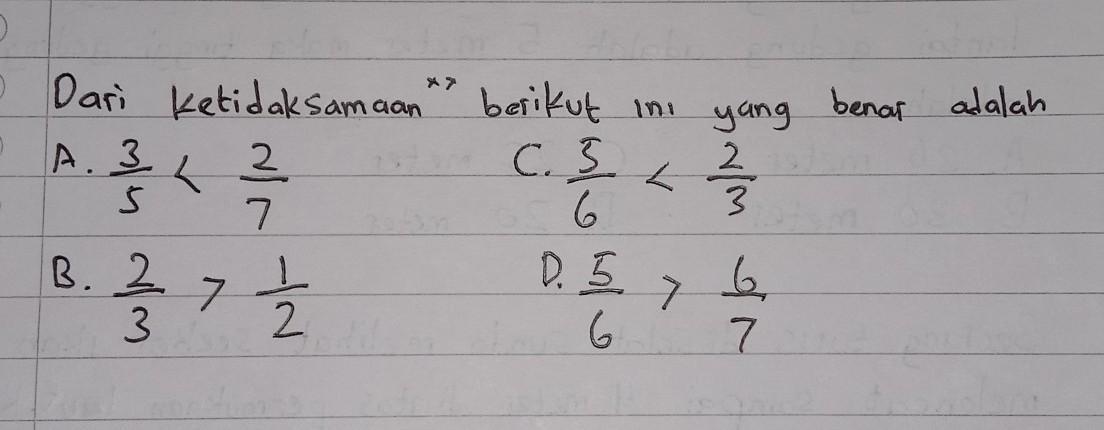 Dari ketidaksamaan"" berikut ini yang benar adalah
A. 3/5 < 2/7 C. 5/6 < 2/3
B. 2/3 > 1/2 D. 5/6 > 6/7